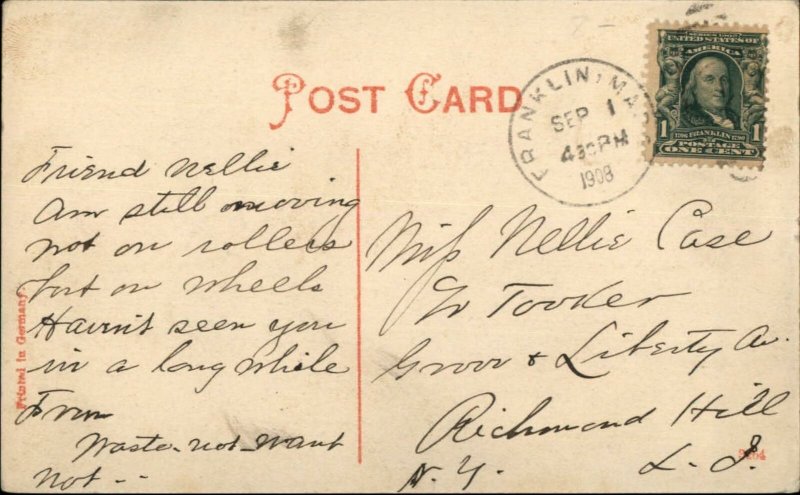 POST CARD
FRANKLIN, MAS
SEP 1
430 PM
1908
SERIES 1902
UNITED STATES OF
AMERICA
1706 FRANKLIN 1790
1 POSTAGE 1
ONE CENT
Friend Nellie
Am still moving
not on rollers
but on wheels
Havn't seen you
in a long while
From
Waste-not-want
not--
Miss Nellie Case
Tooker
Grov + Liberty Av.
Richmond Hill
N.Y. L.I.
Printed in Germany.